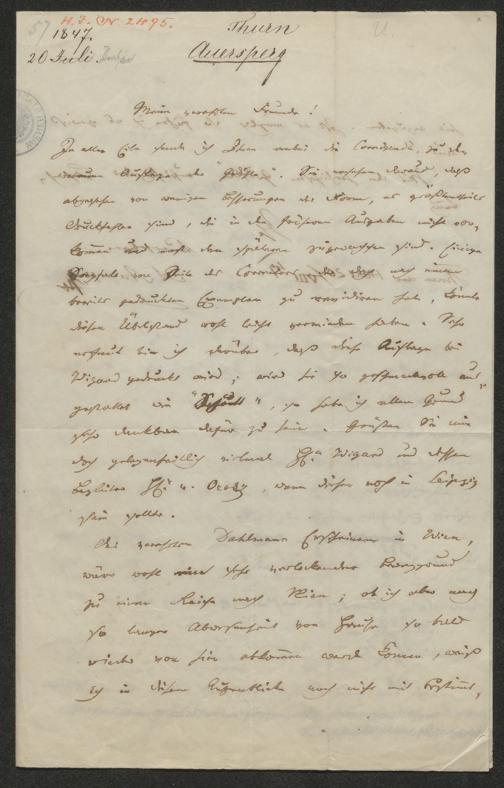 57 H. I. N. 2495.
1847. Thurn
20 Juli Auersperg
Mein verehrter Freund!
In aller Eile sende ich Ihnen anbei die Correctur, zu der
neuen Auflage der "Gedichte". Sie ersehen daraus, daß
abgesehen von wenigen Besserungen der Form, es größtentheils
Druckfehler sind, die in den früheren Ausgaben nicht vor,
kommen und nach den spätern zugewachsen sind. Einige
Sorgfalt von Seite des Correctors, der nach einem
bereits gedruckten Exemplare zu revidiren hat, könnte
diesen Übelstand wohl leicht vermieden haben. Sehr
erfreut bin ich darüber, daß diese Auflage bei
Wigand gedruckt wird; wird sie so geschmackvoll aus,
gestattet wie "Schutt", so habe ich allen Grund
sehr dankbar dafür zu sein. Grüßen Sie mir
doch gelegenheitlich vielmal H. Wigand und dessen
Begleiter H. v. wenn dieser noch in Leipzig
sein sollte.
Des verehrten Dahlmann Erscheinen in Wien,
wäre wohl sehr verlockender Beweggrund
zu einer Reise nach Wien; ob ich aber nach
so langer Abwesenheit von Hause so bald
wieder von hier abkommen werde können, weiß
ich in diesem Augenblicke noch nicht mit Bestimmt,